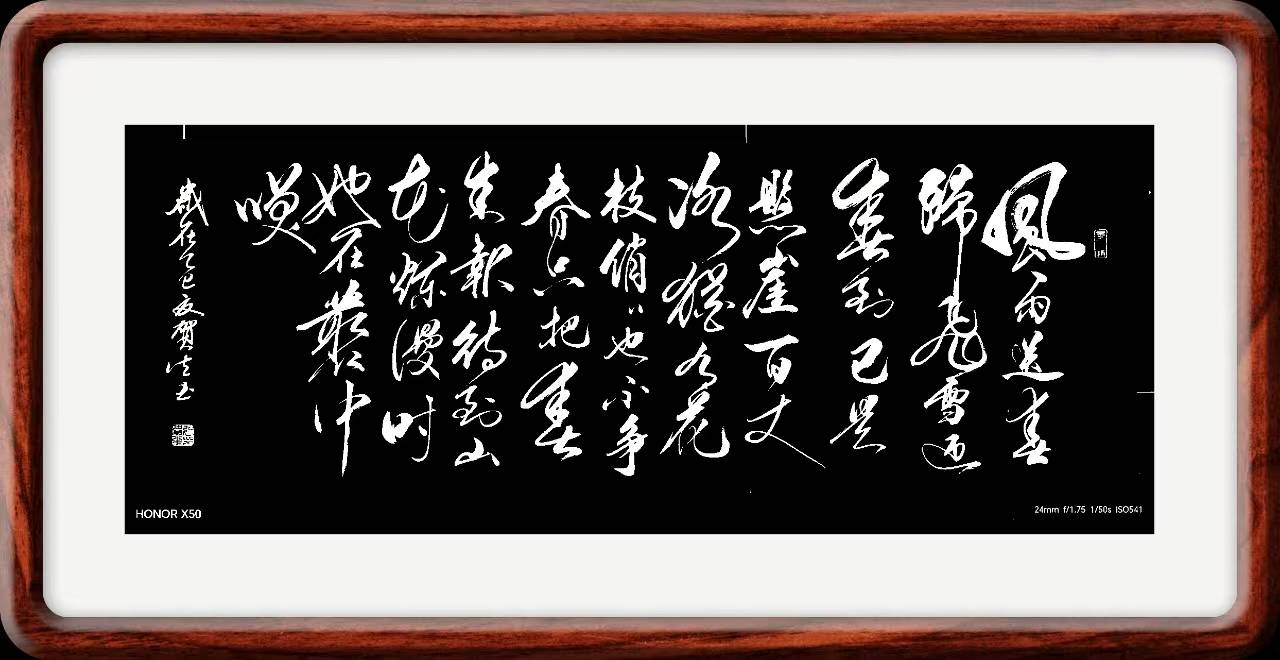 風雨送春
歸飛雪迎
春到已是
懸崖百丈
冰猶有花
枝俏〻也不争
春只把春
来報待到山
花爛漫时
她在叢中
咲
歲在乙巳夏賀
HONOR X50
24mm f/1.75 1/50s ISO541